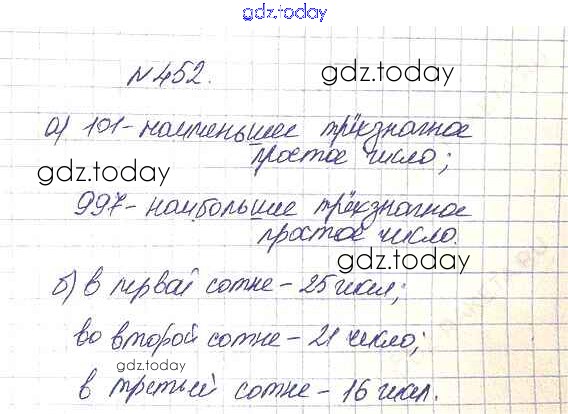 gdz.today
№ 452.
gdz.today
а) 101 - наименьшее трёхзначное
простое число;
gdz.today
997 - наибольшее трёхзначное
простое число.
gdz.today
б) в первой сотне - 25 чисел;
во второй сотне - 21 число;
gdz.today
в третьей сотне - 16 чисел.